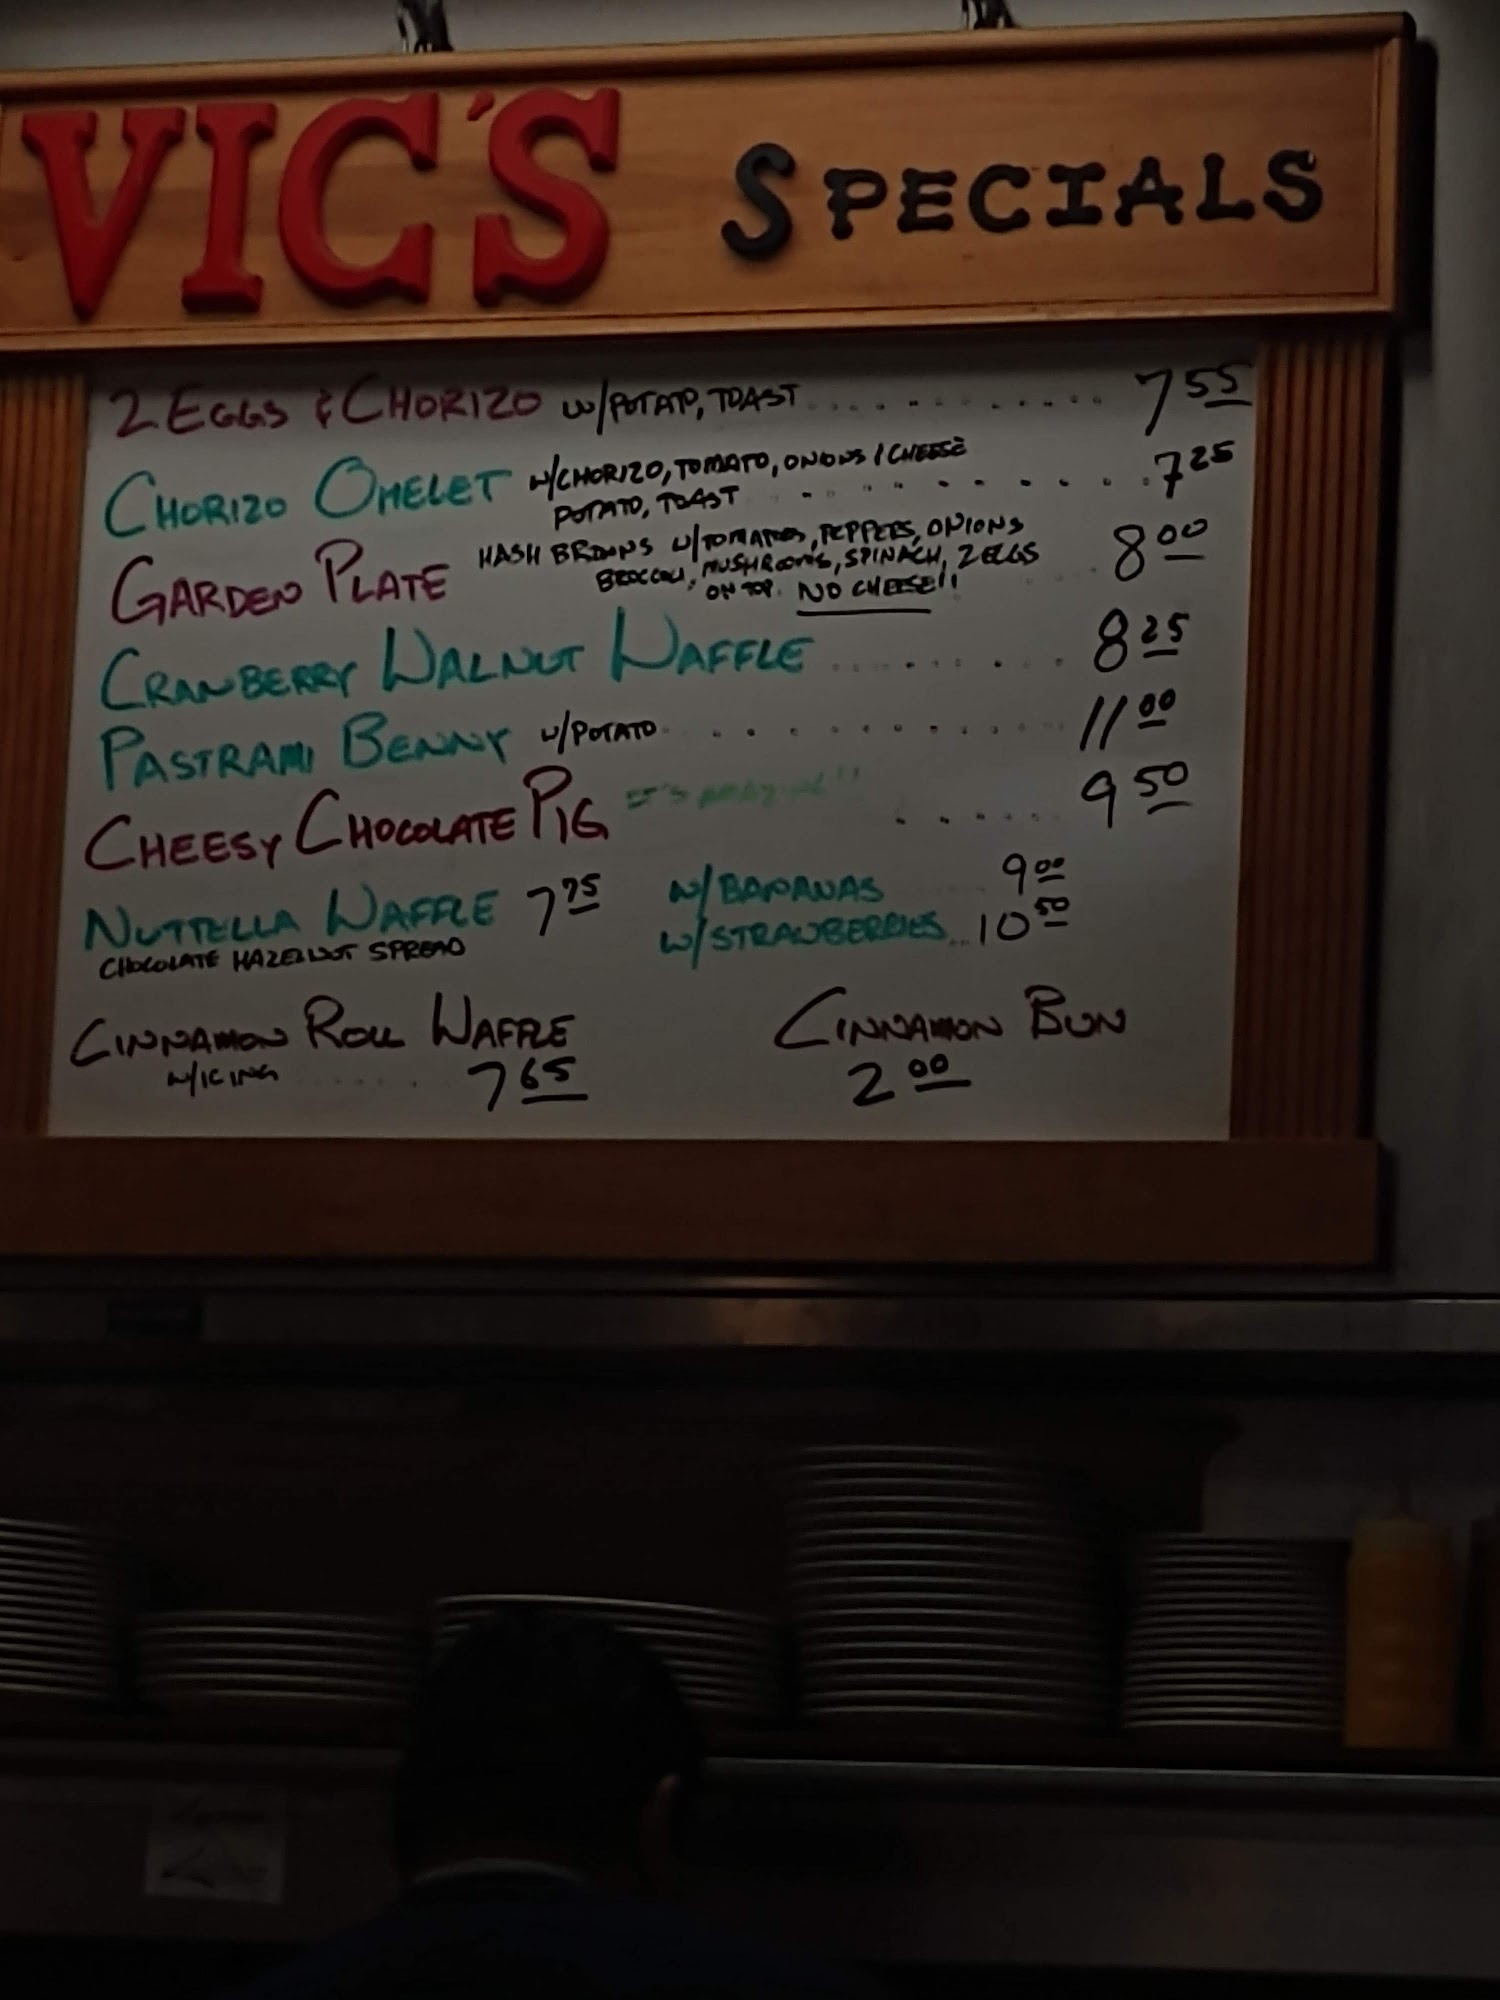 VIC'S SPECIALS
2 EGGS & CHORIZO W/POTATO, TOAST 7 55
CHORIZO OMELET W/CHORIZO, TOMATO, ONIONS / CHEESE
POTATO, TOAST 7 25
GARDEN PLATE HASH BROWNS W/TOMATOES, PEPPERS, ONIONS
BROCCOLI, MUSHROOMS, SPINACH, 2 EGGS 8 00
ON TOP. NO CHEESE!!
CRANBERRY WALNUT WAFFLE 8 25
PASTRAMI BENNY W/POTATO 11 00
CHEESY CHOCOLATE PIG IT'S AMAZING!! 9 50
NUTTELLA WAFFLE 7 75 W/BANANAS 9 00
CHOCOLATE HAZELNUT SPREAD W/STRAWBERRIES 10 50
CINNAMON ROLL WAFFLE CINNAMON BUN
W/ICING 7 65 2 00